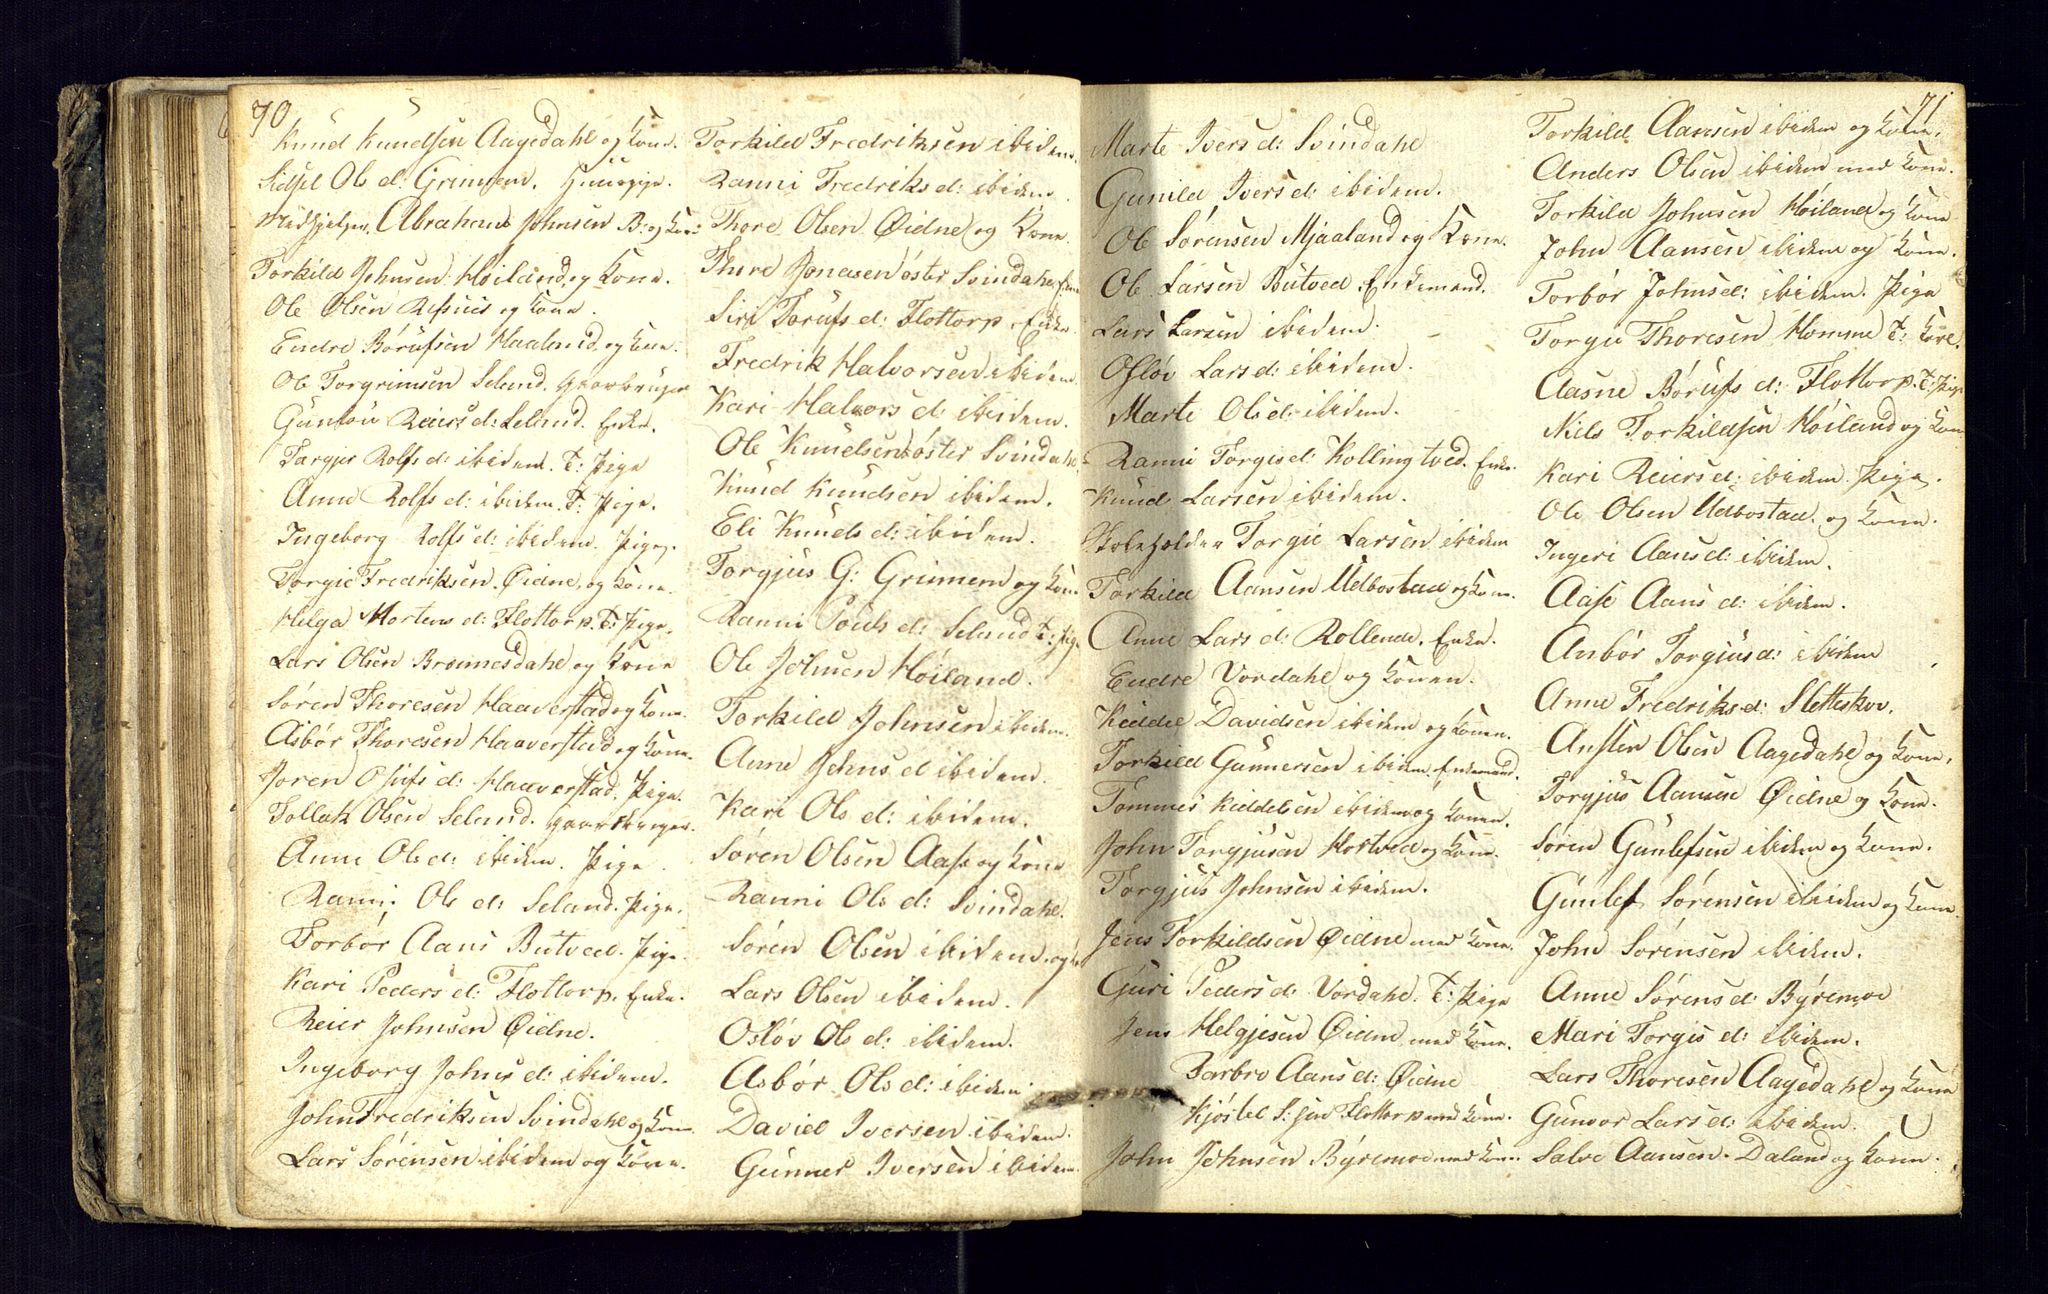 70
Knud Knudsen Aagedahl og Kone.
Sidsel Ols d: Grimnem.
Medhjelper. Abraham Johnsen B: og Kone
Torkild Johnsen Høiland og Kone.
Ole Olsen Refsnes og Kone.
Endre Börufsen Haaland og Kone.
Ole Torgrimsen Seland. gaardbruger
Guntou Reiers d: Seland. Enke.
Targjer Rolfs d: ibidem. T: Pige
Anne Rolfs d: ibidem. T: Pige.
Ingeborg Rolfs d: ibidem. Pige.
Torgie Fredriksen. Øidne. og Kone.
Helga Mortens d: Flottorp. T: Pige.
Lars Olsen Bronnesdahl og Kone
Søren Thoresen Haaverstad og Kone.
Asbør Thoresen Haaverstad og Kone.
Joren Osufs d: Haaverstad. Pige.
Tollak Olsen Seland. gaardbruger.
Anne Ols d: ibidem. Pige
Ranni Ols d: Seland. Pige.
Torbør Aans Butved. Pige.
Kari Peders d: Flottorp. Enke.
Reier Johnsen Øidne.
Ingeborg Johns d: ibidem.
John Fredriksen Svindahl og Kone.
Lars Sörensen ibidem og Kone.
Torkild Fredriksen ibidem.
Ranni Fredriks d: ibidem.
Thore Olsen Øidne og Kone.
Thore Jonasen öster Svindahl Enke
Siri Torufs d: Flottorp. Enke.
Fredrik Halvorsen ibidem.
Kari Halvors d: ibidem.
Ole Knudsen öster Svindahl
Knud Knudsen ibidem.
Eli Knuds d: ibidem.
Torgjus G: Grimnem og Kone
Ranni Pouls d: Seland T: Pige
Ole Johnsen Höiland.
Torkild Johnsen ibidem.
Anne Johns d ibidem.
Kari Ols d: ibidem.
Søren Olsen Aase og Kone
Ranni Ols d: Svindahl.
Sören Olsen ibidem. og
Lars Olsen ibidem.
Osløv Ols d: ibidem.
Asbör Ols d: ibidem
David Iversen ibidem.
Gunner Iversen ibidem.
71
Marte Ivers d: Svindahl
Gunild Ivers d: ibidem.
Ole Sørensen Mjaaland og Kone.
Ole Larsen Butved Enkemand.
Lars Larsen ibidem.
Osløv Lars d: ibidem.
Marte Ols d: ibidem.
Ranni Torgis d: Kollingtved. Enke.
Knud Larsen ibidem.
Skoleholder Torgie Larsen ibidem
Torkild Aansen Udbostad og Kone.
Anne Lars d: Rollende. Enke.
Endre Vordahl og Konen.
Keddel Davidsen ibidem og Konen.
Torkild Gunnersen ibidem Enkemand.
Tommes Keddelsen ibidem og Konen.
John Torgjusen Hostved og Kone.
Torgjus Johnsen ibidem.
Jens Torkildsen Øidne med Kone.
Guri Peders d: Vordahl. T: Pige
Jens Helgjesen Øidne med Kone.
Barbro Aans d: Øidne
Kjöstel Flottorp med Kone.
John Johnsen Byremoe med Kone
Torkild Aansen ibidem og Kone.
Anders Olsen ibidem med Kone.
Torkild Johnsen Høiland og Kone
John Aansen ibidem og Kone.
Torbør Johns d: ibidem. Pige
Torgie Thoresen Homme T: Karl.
Aasne Börufs d: Flottorp. T: Pige
Niels Torkildsen Höiland og Kone
Kari Reiers d: ibidem Pige.
Ole Olsen Udbostad. og Kone.
Ingeri Aans d: ibidem.
Aase Aans d: ibidem.
Anbör Torgjus d: ibidem
Anne Fredriks d: Sletteskov.
Austen Olsen Aagedahl og Kone,
Torgjus Aansen Øidne og Kone.
Sören Gunlefsen ibidem og Kone.
Gunlef Sørensen ibidem og Kone.
John Sörensen ibidem.
Anne Sörens d: Byremoe
Mari Torgis d: ibidem.
Lars Thoresen Aagedahl og Kone
Gunvor Lars d: ibidem.
Salve Aansen. Daland og Kone.